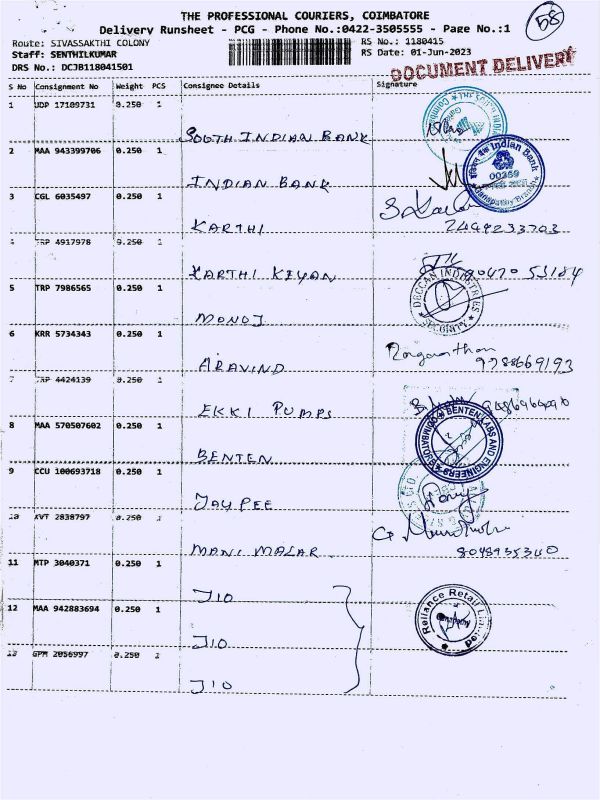 THE PROFESSIONAL COURIERS, COIMBATORE
58
Delivery Runsheet - PCG - Phone No.:0422-3505555 - Page No.:1
Route: SIVASSAKTHI COLONY
RS No.: 1180415
Staff: SENTHILKUMAR
RS Date: 01-Jun-2023
DRS No.: DCJB118041501
DOCUMENT DELIVERY
S No Consignment No Weight PCS Consignee Details Signature
1 UDP 17109731 0.250 1
SOUTH INDIAN BANK
2 MAA 943399706 0.250 1
Indian Bank
00269
Ganapathy Branch
INDIAN BANK
3 CGL 6035497 0.250 1
KARTHI
4 TRP 4917978 0.250 1
KARTHI KEYAN
5 TRP 7986565 0.250 1
DECCAN INDUSTRIES
SECURITY
MONOJ
6 KRR 5734343 0.250 1
ARAVIND 9788669193
7 TRP 4424139 0.250 1
EKKI PUMPS
8 MAA 570507602 0.250 1
BENTEN LABS AND ENGINEERS
COIMBATORE
BENTEN
9 CCU 100693718 0.250 1
JAY PEE
10 KVT 2838797 0.250 1
MANI MALAR
11 MTP 3040371 0.250 1
JIO
12 MAA 942883694 0.250 1
Reliance Retail Limited
Ganapathy
JIO
13 GPM 2056997 0.250 1
JIO